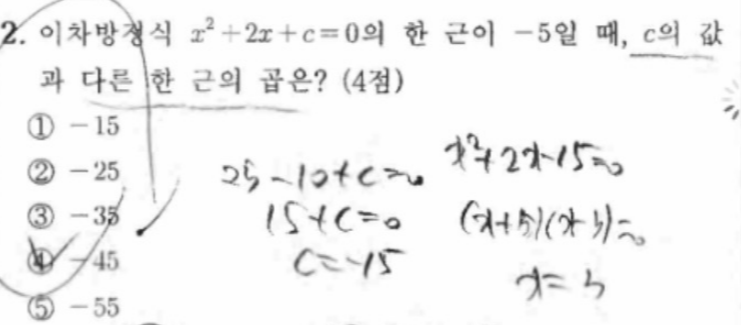 2. 이차방정식 x²+2x+c=0의 한 근이 -5일 때, c의 값
과 다른 한 근의 곱은? (4점)
① -15
② -25
③ -35
④ -45
⑤ -55
25-10+c=0
15+c=0
c=-15
x²+2x-15=0
(x+5)(x-3)=0
x=3